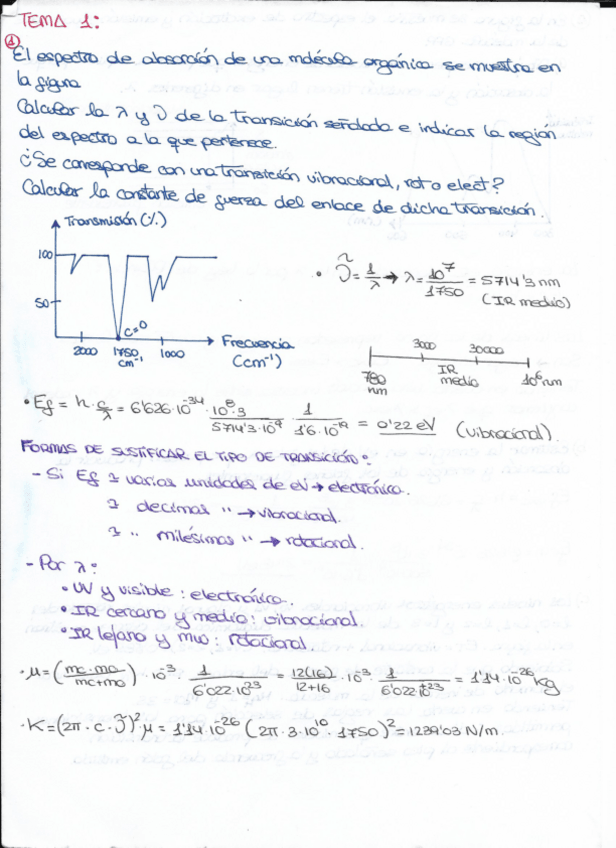 TEMA 1:
①
El espectro de absorción de una molécula orgánica se muestra en
la figura
Calcular la λ y ν̃ de la transición señalada e indicar la región
del espectro a la que pertenece.
¿Se corresponde con una transición vibracional, rot o elect?
Calcular la constante de fuerza del enlace de dicha transición.
Transmisión (%)
100
50
C=O
2000 1750 cm⁻¹ 1000
Frecuencia (cm⁻¹)
• ν̃ = 1/λ → λ = 10⁷/1750 = 5714'3 nm
(IR medio)
3000 30000
780 nm IR medio 10⁶ nm
• Ef = h · c/λ = 6'626·10⁻³⁴ · 10⁸·3/5714'3·10⁻⁹ · 1/1'6·10⁻¹⁹ = 0'22 eV (vibracional).
FORMAS DE JUSTIFICAR EL TIPO DE TRANSICIÓN:
- Si Ef ∃ varias unidades de eV → electrónico.
∃ decimas " → vibracional.
∃ " milésimas " → rotacional.
- Por λ:
• UV y visible: electrónica.
• IR cercano y medio: vibracional.
• IR lejano y mw: rotacional
• μ = (mc·mo/mc+mo) · 10⁻³ · 1/6'022·10²³ = 12(16)/12+16 · 10⁻³ · 1/6'022·10²³ = 1'14·10⁻²⁶ kg
• K = (2π · c · ν̃)² · μ = 1'14·10⁻²⁶ (2π · 3·10¹⁰ · 1750)² = 1239'03 N/m.